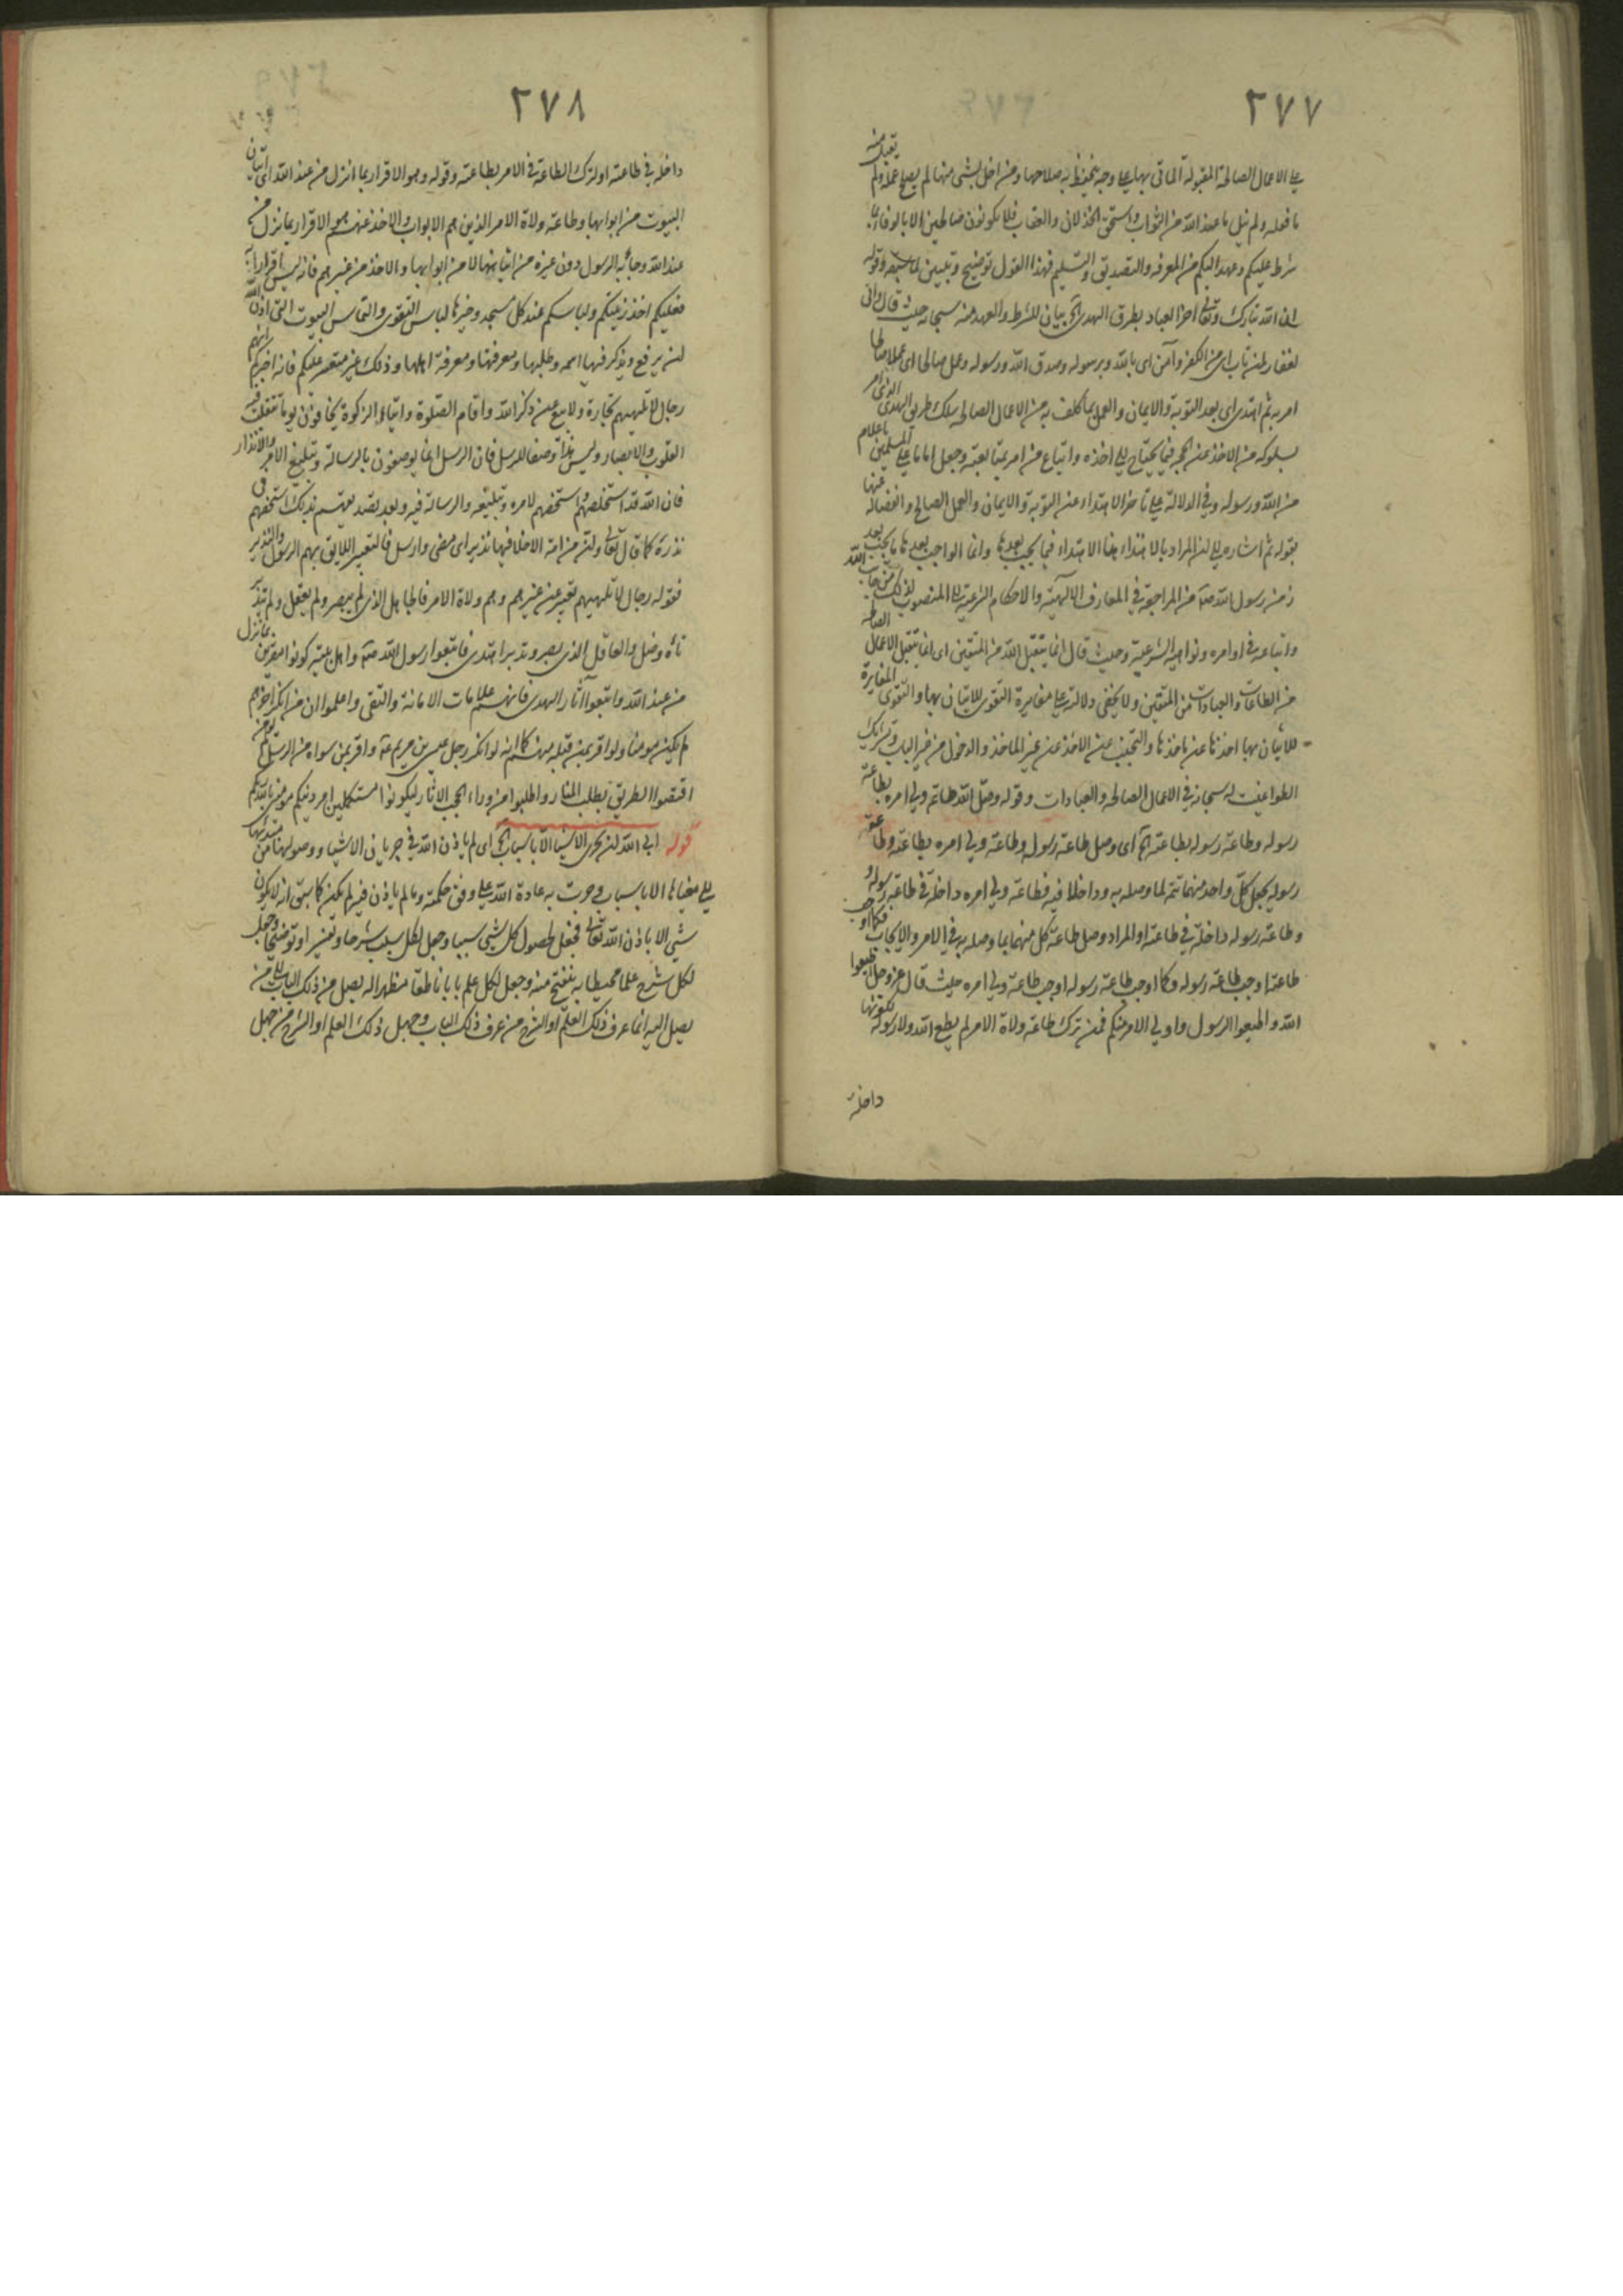 ٢٧٧
على الاعمال الصالحة المقبولة الماتى بها على وجه يحفظ به صلاحها ومن اخل بشى منها لم يصح عمله ولم يقبل منه
ما فعله ولم ينل ما عند الله من الثواب واستحق الخذلان والعقاب فلا يكونون صالحين الا بالوفاء بما
شرط عليكم وعهد اليكم من المعرفه والتصديق والتسليم فهذا القول توضيح وتبيين لما وقوله
ان الله تبارك وتعالى اخبر العباد بطرق الهدى الخ بيان للشرط والعهد منه سبحانه حيث قال وانى
لغفار لمن تاب اى من الكفر وآمن اى بالله وبرسوله وصدق الله ورسوله وعمل صالحا اى عملا صالحا
امر به ثم اهتدى اى بعد التوبة والايمان والعمل بما كلف به من الاعمال الصالحه سلك طريق الهدى الذى امر
بسلوكه من الاخذ عن الحجج فيما يحتاج الى اخذه واتباع من امر بمتابعته وجعل اماما على المسلمين باعلام
من الله ورسوله وفى الدلالة على تاخر الاهتداء عن التوبة والايمان والعمل الصالح وانفصاله عنها
بقوله ثم اشاره الى ان المراد بالاهتداء هنا الاهتداء فيما يجب بعدها وانما الواجب بعدها ما يجب بعد
زمن رسول الله صلى من المراجعة فى المعارف الالهية والاحكام الشرعية الى المنصوب لذلك من جانب الله
واتباعه فى اوامره ونواهيه الشرعية وحيث قال انما يتقبل الله من المتقين اى انما يتقبل الاعمال الصالحة
من الطاعات والعبادات من المتقين ولا يخفى دلالته على مغايرة التقوى للاتيان بها والتقوى المغايرة
للاتيان بها اخذها عن ماخذها والتجنب عن الاخذ عن غير الماخذ والدخول من غير الباب وترك
الطواغيت له سبحانه فى الاعمال الصالحه والعبادات وقوله وصل الله طاعة ولى امره بطاعة
رسوله وطاعة رسوله بطاعته الخ اى وصل طاعة رسوله وطاعة ولى امره بطاعته وطاعة
رسوله بجعل كل واحد منهما تتمة لما وصله به وداخلا فيه فطاعة ولى امره داخلة فى طاعة رسوله و
وطاعة رسوله داخلة فى طاعته او المراد وصل طاعة كل منهما بما وصله به فى الامر والايجاب فكما اوجب
طاعته اوجب طاعة رسوله وكما اوجب طاعة رسوله اوجب طاعة ولى امره حيث قال عز وجل اطيعوا
الله واطيعوا الرسول واولى الامر منكم فمن ترك طاعة ولاة الامر لم يطع الله ولا رسوله لكونها
داخلة
٢٧٨
داخلة فى طاعته او لترك الطاعة فى الامر بطاعته وقوله وهو الاقرار بما انزل من عند الله اى اتيان
البيوت من ابوابها وطاعة ولاة الامر الذين هم الابواب والاخذ عنهم هو الاقرار بما نزل من
عند الله وجاء به الرسول دون غيره من اتيانها لا من ابوابها والاخذ من غيرهم فانه ليس اقرارا به
فعليكم اخذ زينتكم ولباسكم عند كل مسجد وخيرها لباس التقوى والتماس البيوت التى اذن الله
ان يرفع ويذكر فيها اسمه وطلبها ومعرفتها ومعرفة اهلها وذلك غير متعسر عليكم فانه اخبركم انهم
رجال لا تلهيهم تجارة ولا بيع عن ذكر الله واقام الصلوة وايتاء الزكوة يخافون يوما تتقلب فيه
القلوب والابصار وليس هذا وصفا للرسل فان الرسل انما يوصفون بالرسالة وتبليغ الامر والانذار
فان الله قد استخلصهم واستخصهم لامره وتبليغه والرسالة فيه وبعد تصديقهم بذلك استخصهم فى
نذره كما قال تعالى وان من امة الا خلا فيها نذير اى مضى وارسل فالتعبير اللايق بهم الرسول والنذير
فقوله رجال لا تلهيهم تعبير عن غيرهم وهم ولاة الامر فالجاهل الذى لم يبصر ولم يعقل ولم يتدبر
تاه وضل والعاقل الذى يبصر وتدبر اهتدى فاتبعوا رسول الله صلى واهل بيته كونوا مقرين بما نزل
من عند الله واتبعوا آثار الهدى فانهم علامات الامانة والتقى واعلموا ان من انكر اخرهم
لم يكن مومنا ولو اقر بمن قبله منهم كما انه لو انكر رجل عيسى بن مريم ع واقر بمن سواه من الرسل لم يومن
اقتصوا الطريق بطلب المنار واطلبوا من وراء الحجب الاثار ليكونوا مستكملين امر دينكم مومنين بالله ربكم
قوله ابى الله ان يجرى الاشياء الا باسباب الخ اى لم ياذن الله فى جريان الاشياء ووصولها من مبتدئها
الى منتهاها الا باسباب جرت به عادة الله على وفق حكمته وما لم ياذن فيه لم يكن كما سبق انه لا يكون
شى الا باذن الله تعالى فجعل لحصول كل شى سببا وجعل لكل سبب شرحا وتفسيرا وتوضيحا وجعل
لكل شرح علما محيطا به ينفتح منه وجعل لكل علم بابا ناطقا مظهرا له يصل من ذلك الباب اليه من
يصل اليه انما عرف ذلك العلم او الشرح من عرف ذلك الباب وجهل ذلك العلم او الشرح من جهل